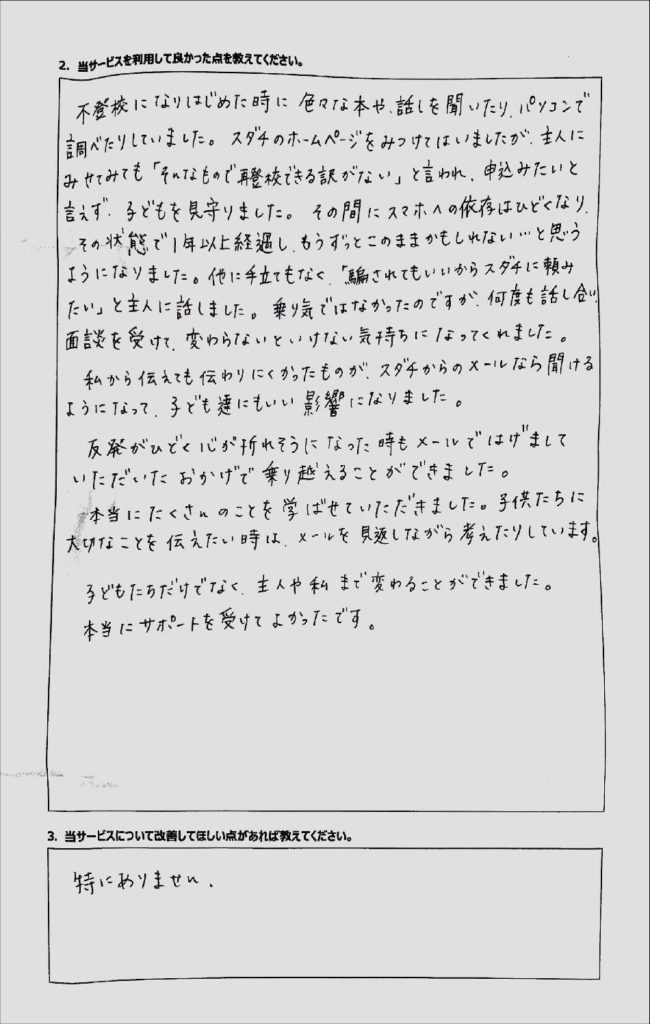 2. 当サービスを利用して良かった点を教えてください。
不登校になりはじめた時に 色々な本や、話しを聞いたり、パソコンで
調べたりしていました。スダチのホームページをみつけてはいましたが、主人に
みせてみても「そんなもので再登校できる訳がない」と言われ、申込みたいと
言えず、子どもを見守りました。その間にスマホへの依存はひどくなり、
その状態で1年以上経過し、もうずっとこのままかもしれない…と思う
ようになりました。他に手立てもなく、「騙されてもいいからスダチに頼み
たい」と主人に話しました。乗り気ではなかったのですが、何度も話し合い、
面談を受けて、変わらないといけない気持ちになってくれました。
私から伝えても伝わりにくかったものが、スダチからのメールなら聞ける
ようになって、子ども達にもいい影響になりました。
反発がひどく心が折れそうになった時もメールではげまして
いただいたおかげで乗り越えることができました。
本当にたくさんのことを学ばせていただきました。子供たちに
大切なことを伝えたい時は、メールを見返しながら考えたりしています。
子どもたちだけでなく、主人や私まで変わることができました。
本当にサポートを受けてよかったです。
3. 当サービスについて改善してほしい点があれば教えてください。
特にありません.